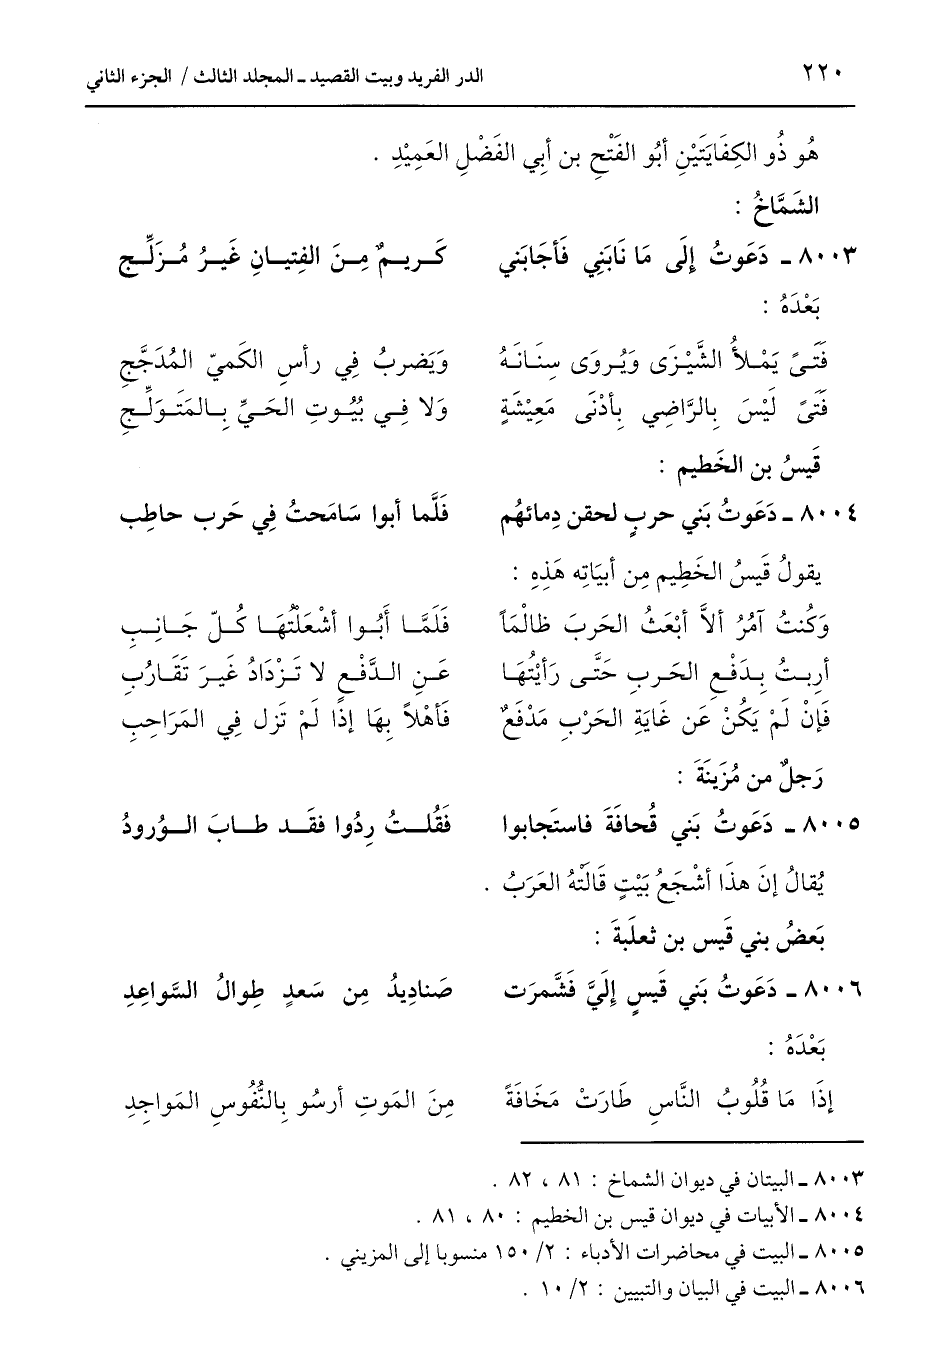 ٢٢٠ الدر الفريد وبيت القصيد ـ المجلد الثالث / الجزء الثاني
هُو ذُو الكِفَايَتَيْنِ أبُو الفَتْحِ بن أبي الفَضْلِ العَمِيْدِ .
الشَمَّاخُ :
٨٠٠٣ ـ دَعَوتُ إلَى مَا نَابَنِي فَأجَابَني كَريمٌ مِنَ الفِتيانِ غَيرُ مُزَلَّجِ
بَعْدَهُ :
فَتَىً يَمْلأُ الشَّيْزَى وَيُروَى سِنَانَهُ وَيَضربُ فِي رأسِ الكَميّ المُدَجَّجِ
فَتَىً لَيْسَ بالرَّاضِي بِأدْنَى مَعِيْشَةٍ وَلا فِي بُيُوتِ الحَيِّ بِالمَتَوَلِّجِ
قَيسُ بن الخَطيم :
٨٠٠٤ ـ دَعَوتُ بَني حربٍ لحقن دِمائهُم فَلَّما أبوا سَامَحتُ فِي حَرب حاطِب
يقولُ قَيسُ الخَطِيم مِن أبيَاتِه هَذِهِ :
وَكُنتُ آمُرُ ألاَّ أبْعَثُ الحَربَ ظالْمَاً فَلَمَّا أَبُوا أشْعَلْتُهَا كُلّ جَانِبِ
أرِبتُ بِدَفْعِ الحَربِ حَتَّى رَأيْتُهَا عَنِ الدَّفْعِ لا تَزْدَادُ غَيرَ تَقَارُبِ
فَإنْ لَمْ يَكُنْ عَن غَايَةِ الحَرْبِ مَدْفَعٌ فَأهْلاً بِهَا إذَا لَمْ تَزل فِي المَرَاحِبِ
رَجلٌ من مُزَينَةَ :
٨٠٠٥ ـ دَعَوتُ بَني قُحافَةَ فاستَجابوا فَقُلتُ رِدُوا فقَد طابَ الوُرودُ
يُقالُ إنَ هذَا أشْجَعُ بَيْتٍ قَالَتْهُ العَرَبُ .
بَعضُ بني قَيس بن ثعلَبةَ :
٨٠٠٦ ـ دَعَوتُ بَني قَيسٍ إلَيَّ فَشَّمرَت صَناديدُ مِن سَعدٍ طِوالُ السَّواعِدِ
بَعْدَهُ :
إذَا مَا قُلُوبُ النَّاسِ طَارَتْ مَخَافَةً مِنَ المَوتِ أرسُو بِالنُّفُوسِ المَواجِدِ
٨٠٠٣ ـ البيتان في ديوان الشماخ : ٨١ ، ٨٢ .
٨٠٠٤ ـ الأبيات في ديوان قيس بن الخطيم : ٨٠ ، ٨١ .
٨٠٠٥ ـ البيت في محاضرات الأدباء : ٢/ ١٥٠ منسوبا إلى المزيني .
٨٠٠٦ ـ البيت في البيان والتبيين : ٢/ ١٠ .